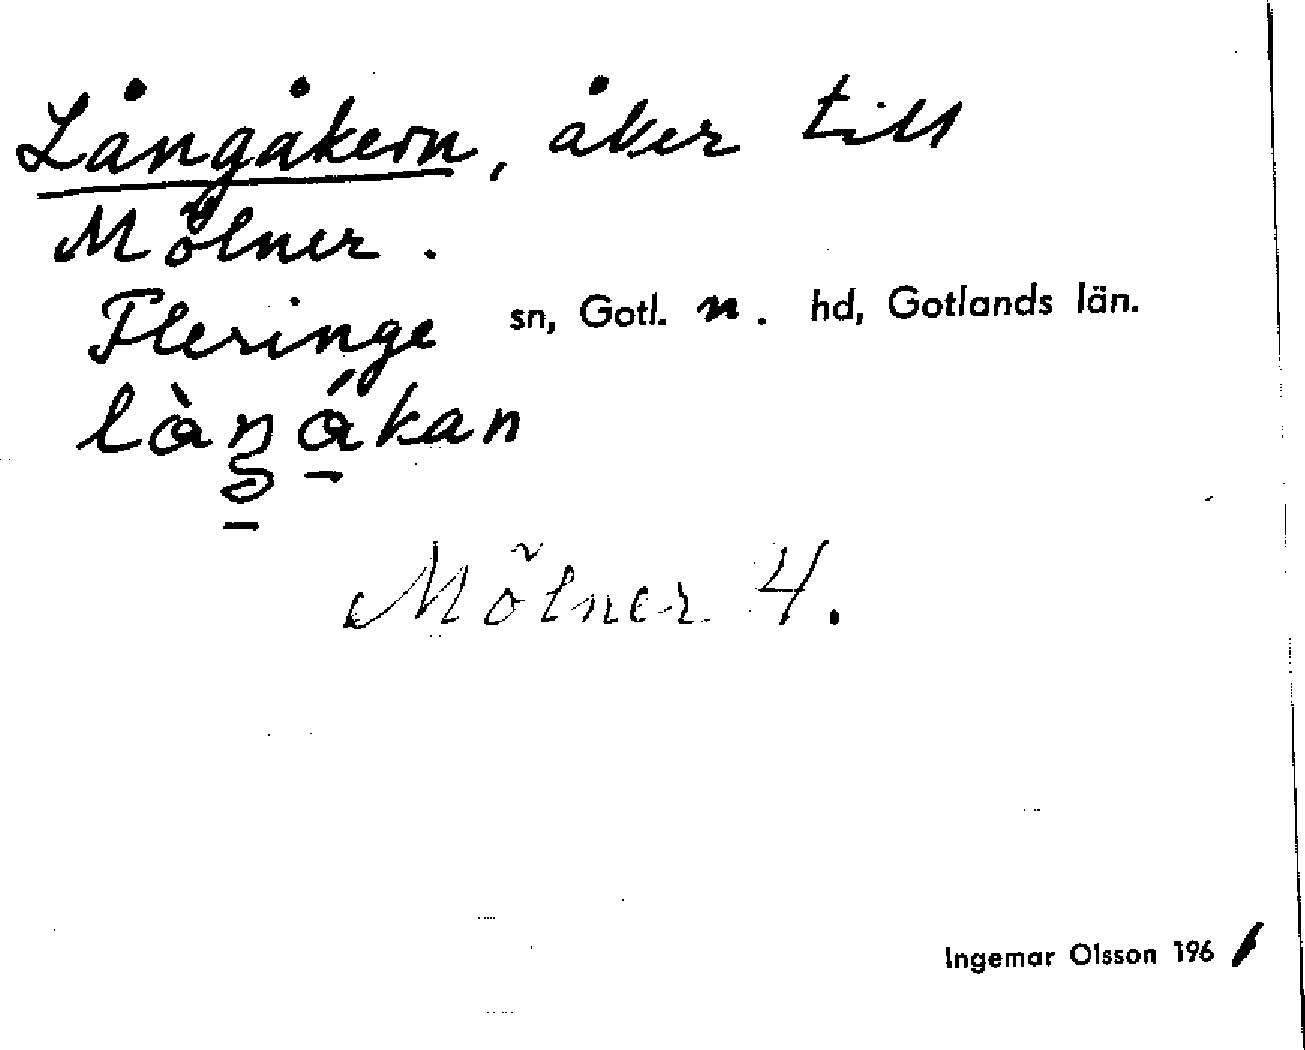 Långåkern, åker till
Mölner.
Fleringe sn, Gotl. n. hd, Gotlands län.
Mölner 4.
Ingemar Olsson 1961